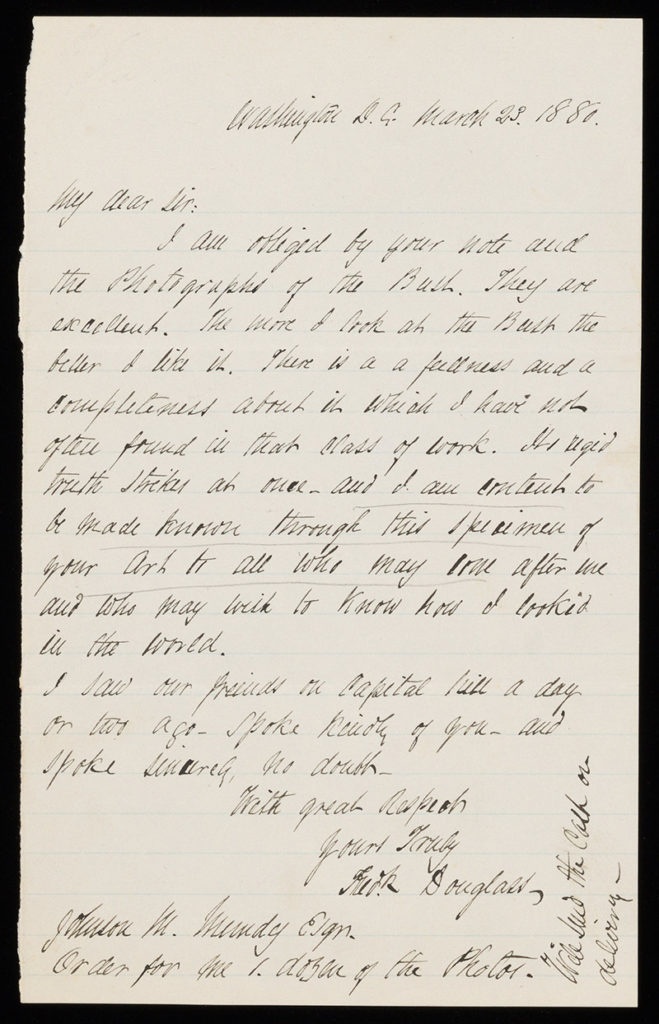 Washington D.C. March 23. 1880.
My dear Sir:
I am obliged by your note and
the Photographs of the Bust. They are
excellent. The more I look at the Bust the
better I like it. There is a a fullness and a
completeness about it which I have not
often found in that class of work. Its rigid
truth strikes at once - and I am content to
be made known through this specimen of
your Art to all who may come after me
and who may wish to know how I look'd
in the world.
I saw our friends on Capital hill a day
or two ago - Spoke kindly of you - and
spoke sincerely, no doubt -
With great Respect
Yours Truly
Fredk Douglass,
Johnson M. Mundy Esqr.
Order for me 1. dozen of the Photos. -
Will send the Cash on
delivery -